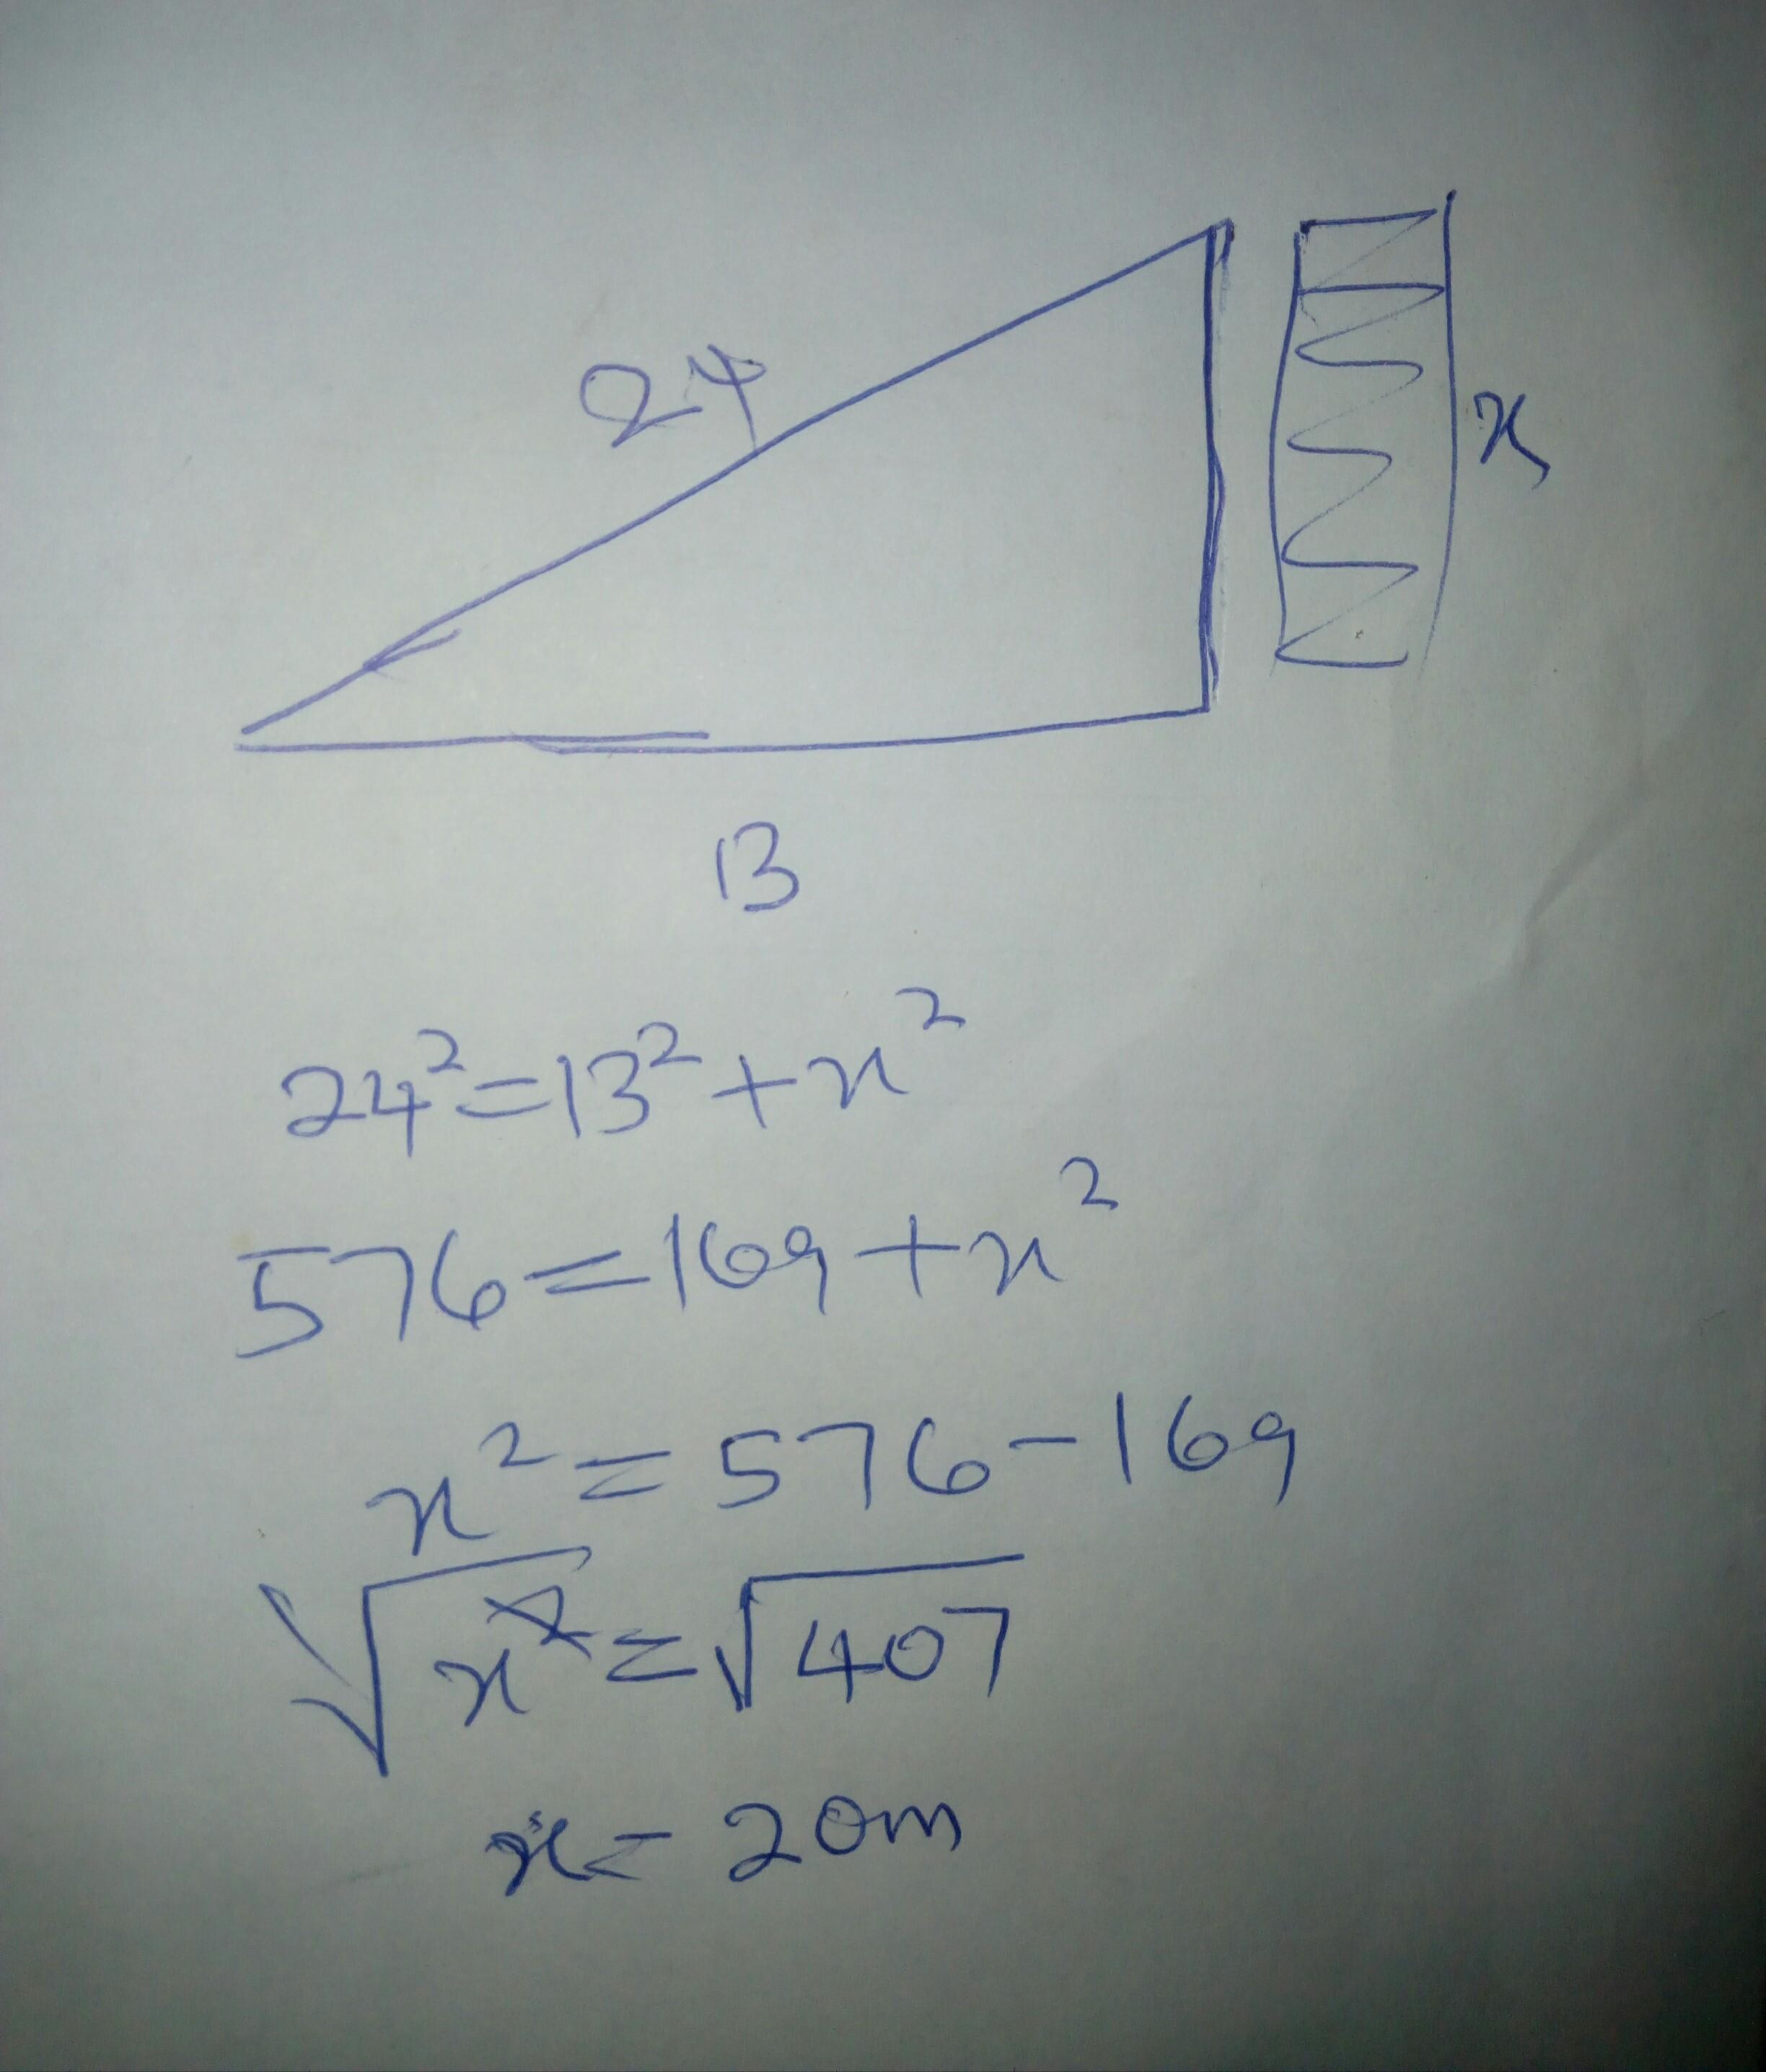 24
x
13
24²=13²+x²
576=169+x²
x²=576-169
√x²=√407
x=20m